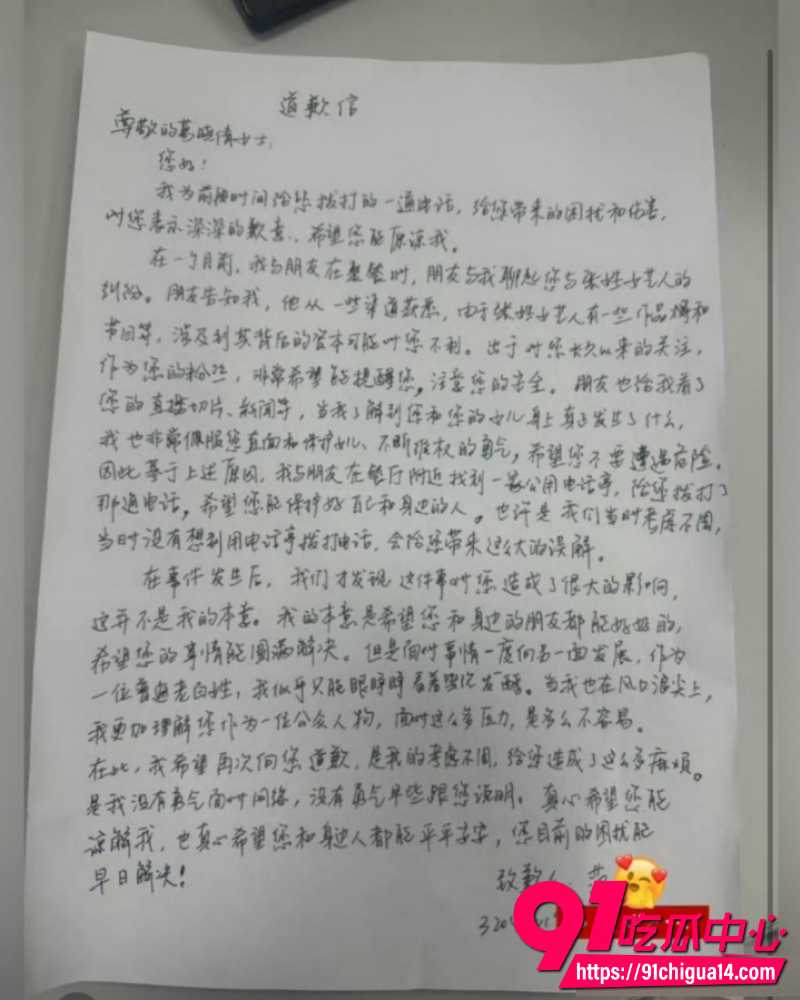 道歉信
尊敬的葛晓倩女士：
您好！
我为前段时间给您拨打的一通电话，给您带来的困扰和伤害，
向您表示深深的歉意，希望您能原谅我。
在一个月前，我与朋友在聚餐时，朋友与我聊起您与张姓女艺人的
纠纷。朋友告知我，他从一些渠道获悉，由于张姓女艺人有一些作品播和
节目等，涉及到其背后的资本可能对您不利。出于对您长久以来的关注，
作为您的粉丝，非常希望能提醒您，注意您的安全。朋友也给我看了
您的直播切片、新闻等，当我了解到您和您的女儿身上真正发生了什么，
我也非常佩服您直面和保护女儿、不断维权的勇气，希望您不要遭遇危险。
因此基于上述原因，我与朋友在餐厅附近找到一家公用电话亭，给您拨打了
那通电话，希望您能保护好自己和身边的人。也许是我们当时考虑不周，
当时没有想到用电话亭拨打电话，会给您带来这么大的误解。
在事件发生后，我们才发现这件事对您造成了很大的影响，
这并不是我的本意。我的本意是希望您和身边的朋友都能好好的，
希望您的事情能圆满解决。但是面对事情一度向另一面发展，作为
一位普通老百姓，我似乎只能眼睁睁看着发酵。当我也在风口浪尖上，
我更加理解您作为一位公众人物，面对这么多压力，是多么不容易。
在此，我希望再次向您道歉，是我的考虑不周，给您造成了这么多麻烦。
是我没有勇气面对网络，没有勇气早些跟您说明。真心希望您能
谅解我，也真心希望您和身边人都能平平安安，您目前的困扰能
早日解决！
致歉人
91吃瓜中心
https://91chigua14.com